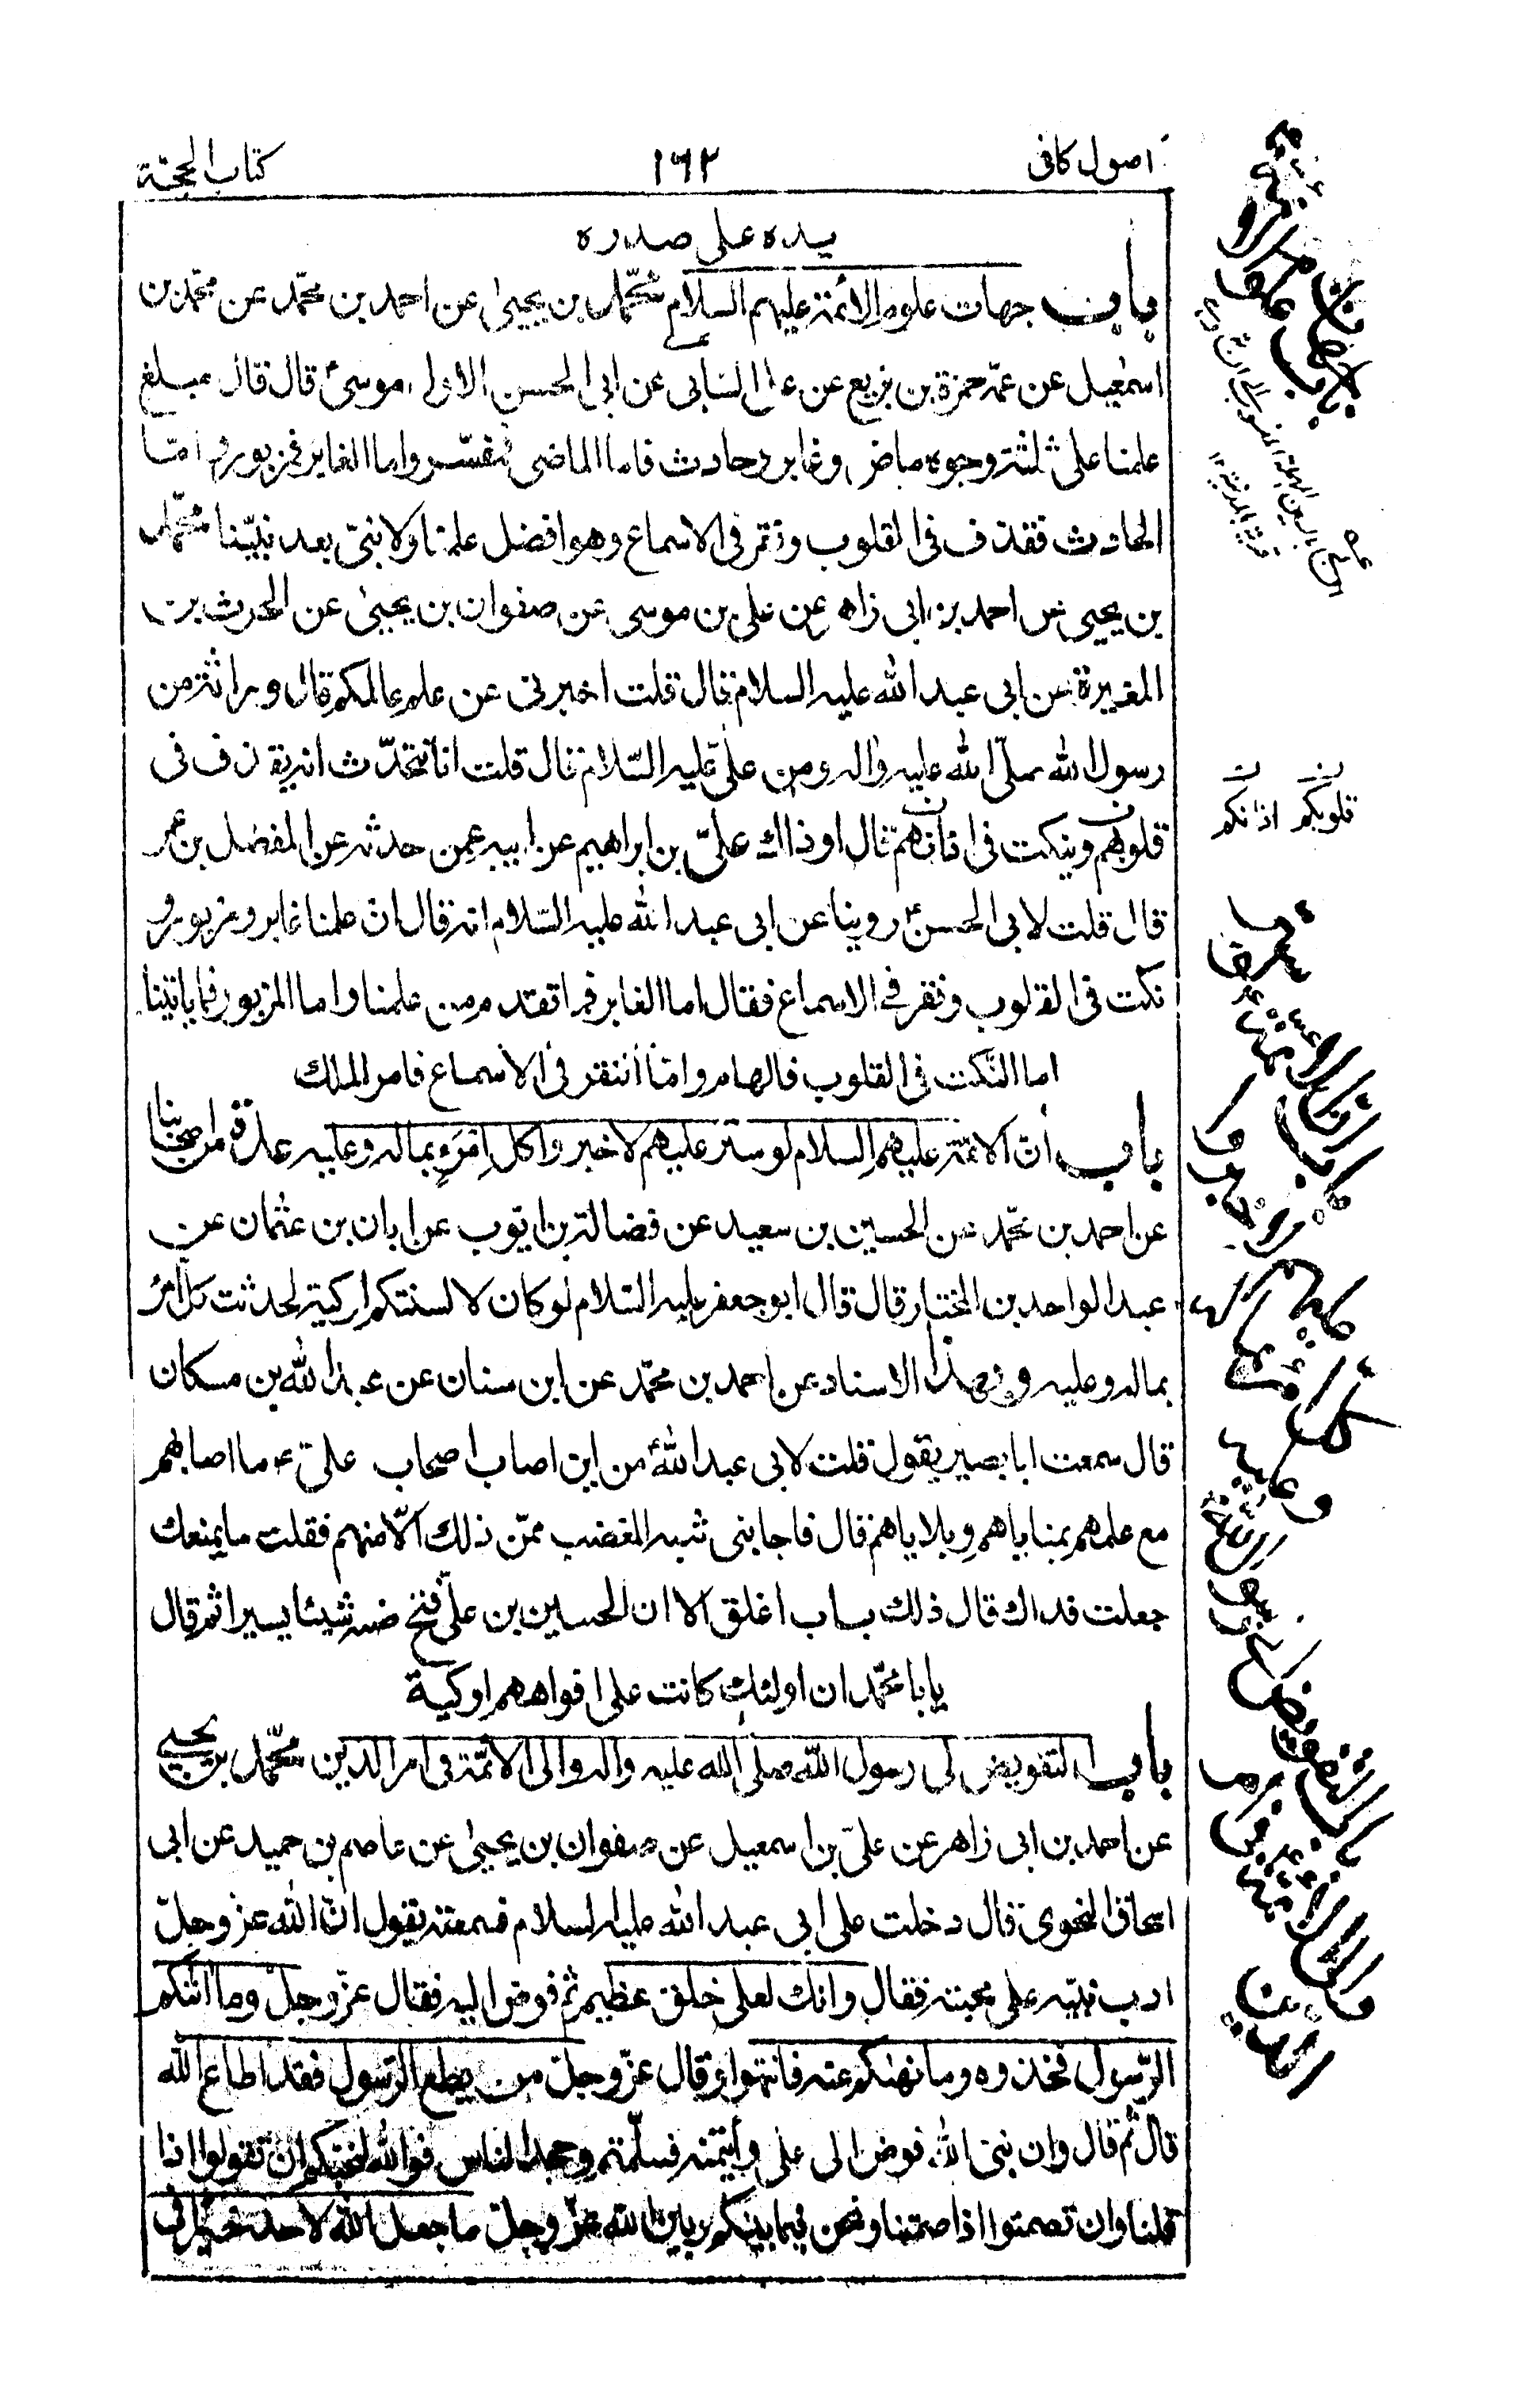 اصول كافى
١٦٢
كتاب الحجّة
يده على صدره
باب جهات علوم الائمة عليهم السلام محمّد بن يحيى عن احمد بن محمّد عن محمّد بن
اسمعيل عن عمّه حمزة بن بزيع عن على السائى عن ابى الحسن الاول موسىٰ قال قال مبلغ
علمنا على ثلثة وجوه ماض وغابر وحادث فاما الماضى فمفسّر واما الغابر فمزبور وامّا
الحادث فقذف فى القلوب ونقر فى الاسماع وهو افضل علمنا ولا نبىّ بعد نبيّنا محمّد
بن يحيى عن احمد بن ابى زاهر عن على بن موسى عن صفوان بن يحيىٰ عن الحرث بن
المغيرة عن ابى عبد الله عليه السلام قال قلت اخبرنى عن علم عالمكم قال وراثة من
رسول الله صلّى الله عليه واله ومن علىّ عليه السّلام قال قلت انّا نتحدّث انه يقذف فى
قلوبهم وينكت فى اذانهم قال او ذاك علىّ بن ابراهيم عن ابيه عمن حدثه عن المفضل بن عمر
قال قلت لابى الحسن روينا عن ابى عبد الله عليه السّلام انه قال ان علمنا غابر ومزبور و
نكت فى القلوب ونقر فى الاسماع فقال اما الغابر فما تقدم من علمنا واما المزبور فما ياتينا
اما النّكت فى القلوب فالهام وامّا النقر فى الأسماع فامر الملك
باب أن الائمّة عليهم السلام لو ستر عليهم لاخبروا كل امرء بماله وعليه عدة من اصحابنا
عن احمد بن محمّد عن الحسين بن سعيد عن فضالة بن ايّوب عن ابان بن عثمان عن
عبد الواحد بن المختار قال قال ابو جعفر عليه السّلام لو كان لالسنتكم اوكية لحدثت كل امرء
بماله وعليه وبهذا الاسناد عن احمد بن محمّد عن ابن سنان عن عبد الله بن مسكان
قال سمعت ابا بصير يقول قلت لابى عبد الله من اين اصاب اصحاب علىّ ما اصابهم
مع علمهم بمناياهم وبلاياهم قال فاجابنى شبه المغضب ممّن ذلك الّا منهم فقلت ما يمنعك
جعلت فداك قال ذلك باب اغلق الا ان الحسين بن علىّ فتح منه شيئا يسيرا ثم قال
يا با محمّد ان اولئك كانت على افواههم اوكية
باب التفويض الى رسول الله صلى الله عليه واله والى الائمّة فى امر الدين محمّد بن يحيى
عن احمد بن ابى زاهر عن علىّ بن اسمعيل عن صفوان بن يحيىٰ عن عاصم بن حميد عن ابى
اسحاق النحوى قال دخلت على ابى عبد الله عليه السلام فسمعته يقول انّ الله عز وجلّ
ادب نبيّه على محبته فقال وانك لعلى خلق عظيم ثم فوض اليه فقال عزّ وجلّ وما اتٰكم
الرّسول فخذوه وما نهٰيكم عنه فانتهوا وقال عزّ وجلّ من يطع الرّسول فقد اطاع الله
قال ثم قال وان نبى الله فوض الى على وأتمنه فسلّمتم وجحد الناس فو الله لنحبكم ان تقولوا اذا
قلنا وان تصمتوا اذا صمتنا ونحن فيما بينكم وبين الله عزّ وجلّ ما جعل الله لاحد خيرا فى
قلوبكم اذانكم
باب التفويض الى رسول الله
والى الائمة فى امر
الدين